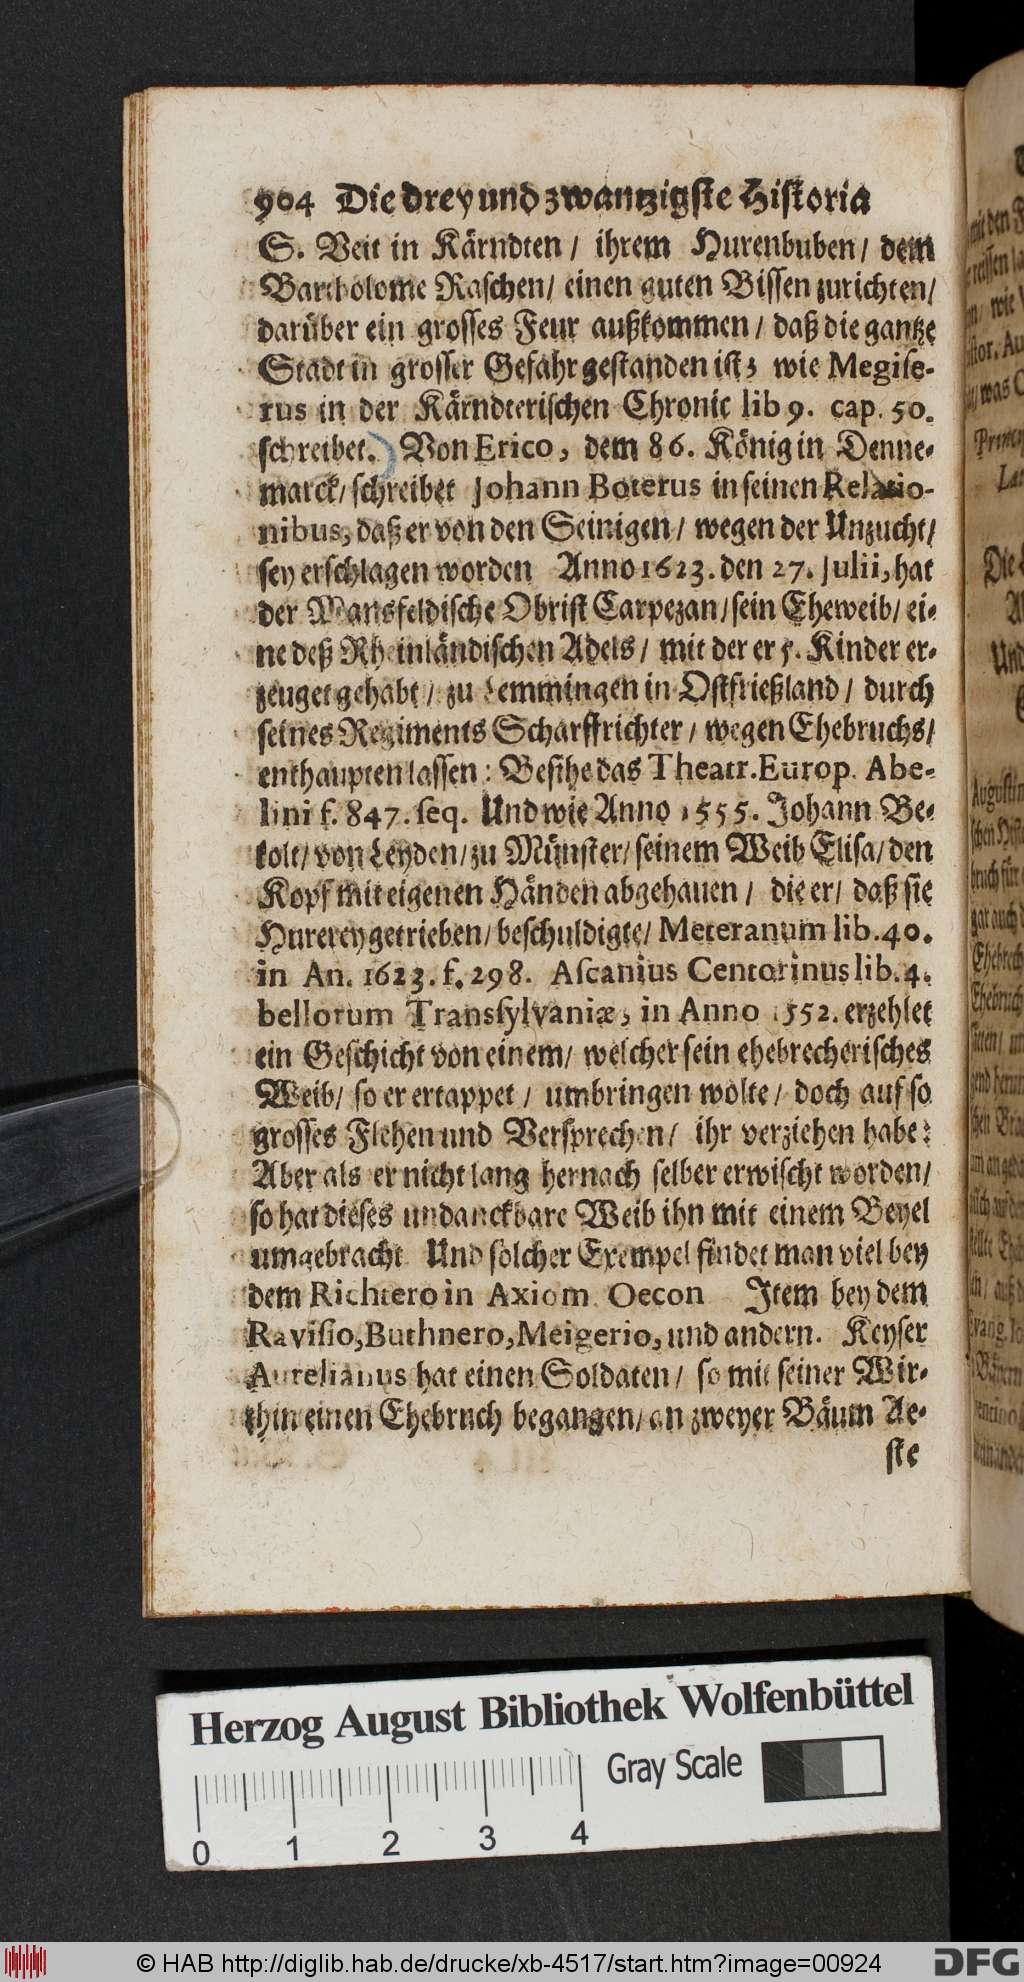 904 Die drey und zwantzigste Historia
S. Veit in Kärndten / ihrem Hurenbuben / dem
Bartholome Raschen / einen guten Bissen zurichten /
darüber ein grosses Feur außkommen / daß die gantze
Stadt in grosser Gefahr gestanden ist; wie Megise-
rus in der Kärndterischen Chronic lib 9. cap. 50.
schreibet.) Von Erico, dem 86. König in Denne-
marck / schreibet Johann Boterus in seinen Relatio-
nibus, daß er von den Seinigen / wegen der Unzucht /
sey erschlagen worden Anno 1623. den 27. Julii, hat
der Mansfeldische Obrist Carpezan / sein Eheweib / ei-
ne deß Rheinländischen Adels / mit der er 5. Kinder er-
zeuget gehabt / zu Lemmingen in Ostfrießland / durch
seines Regiments Scharffrichter / wegen Ehebruchs /
enthaupten lassen: Besihe das Theatr. Europ. Abe-
lini f. 847. seq. Und wie Anno 1555. Johann Be-
kolt / von Leyden / zu Münster / seinem Weib Elisa / den
Kopf mit eigenen Händen abgehauen / die er / daß sie
Hurerey getrieben / beschuldigte / Meteranum lib. 40.
in An. 1623. f. 298. Ascanius Centorinus lib. 4.
bellorum Transsylvaniæ, in Anno 1552. erzehlet
ein Geschicht von einem / welcher sein ehebrecherisches
Weib / so er ertappet / umbringen wolte / doch auf so
grosses Flehen und Versprechen / ihr verziehen habe:
Aber als er nicht lang hernach selber erwischt worden /
so hat dieses undanckbare Weib ihn mit einem Beyel
umgebracht Und solcher Exempel findet man viel bey
dem Richtero in Axiom Oecon Item bey dem
Ravisio, Buthnero, Meigerio, und andern. Keyser
Aurelianus hat einen Soldaten / so mit seiner Wir-
thin einen Ehebruch begangen / an zweyer Bäum Ae-
ste
Herzog August Bibliothek Wolfenbüttel
Gray Scale
0 1 2 3 4
© HAB http://diglib.hab.de/drucke/xb-4517/start.htm?image=00924
DFG